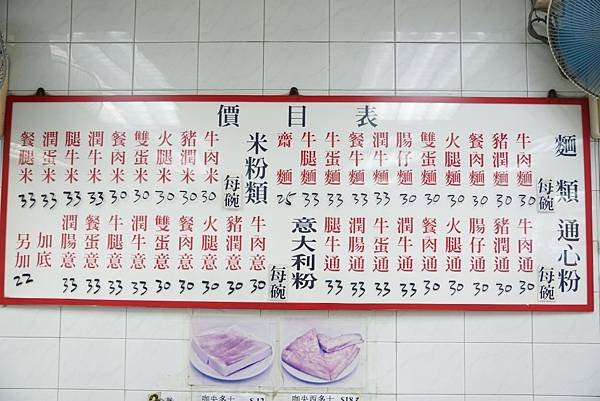 價目表
麵類 每碗
牛肉麵 30
豬潤麵 30
餐肉麵 30
火腿麵 30
雙蛋麵 30
腸仔麵 30
潤牛麵 33
餐牛麵 33
牛蛋麵 33
牛腿麵 33
齋麵 25
米粉類 每碗
牛肉米 30
豬潤米 30
火腿米 30
雙蛋米 30
餐肉米 30
潤牛米 33
腿牛米 33
潤蛋米 33
餐腿米 33
通心粉 每碗
牛肉通 30
豬潤通 30
腸仔通 30
火腿通 30
餐肉通 30
潤牛通 33
牛蛋通 33
潤腸通 33
腿牛通 33
意大利粉 每碗
牛肉意 30
豬潤意 30
火腿意 30
餐肉意 30
雙蛋意 30
潤牛意 33
牛腿意 33
餐蛋意 33
潤腸意 33
加底
另加 22
咖央多士 $12
咖央西多士 $18